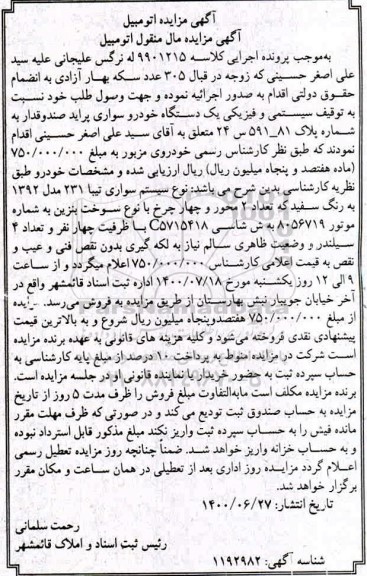 آگهی مزایده اتومبیل
آگهی مزایده مال منقول اتومبیل
به‌موجب پرونده اجرایی کلاسه ۹۹۰۱۲۱۵ له نرگس علیجانی علیه سید
علی اصغر حسینی که زوجه در قبال ۳۰۵ عدد سکه بهار آزادی به انضمام
حقوق دولتی اقدام به صدور اجرائیه نموده و جهت وصول طلب خود نسبت
به توقیف سیستمی و فیزیکی یک دستگاه خودرو سواری پراید صندوقدار به
شماره پلاک ۸۱_۵۹۱ س ۲۴ متعلق به آقای سید علی اصغر حسینی اقدام
نمودند که طبق نظر کارشناس رسمی خودروی مزبور به مبلغ ۷۵۰/۰۰۰/۰۰۰
(ماده هفتصد و پنجاه میلیون ریال) ریال ارزیابی شده و مشخصات خودرو طبق
نظریه کارشناسی بدین شرح می باشد: نوع سیستم سواری تیبا ۲۳۱ مدل ۱۳۹۲
به رنگ سفید که تعداد ۲ محور و چهار چرخ با نوع سوخت بنزین به شماره
موتور ۸۰۵۶۷۱۹ به ش شاسی C۵۷۱۵۴۱۸ با ظرفیت چهار نفر و تعداد ۴
سیلندر و وضعیت ظاهری سالم نیاز به لکه گیری بدون نقص فنی و عیب و
نقص به قیمت اعلامی کارشناس ۷۵۰/۰۰۰/۰۰۰ اعلام میگردد و از ساعت
۹ الی ۱۲ روز یکشنبه مورخ ۱۴۰۰/۰۷/۱۸ اداره ثبت اسناد قائمشهر واقع در
آخر خیابان جویبار نبش بهارستان از طریق مزایده به فروش می‌رسد. مزایده
از مبلغ ۷۵۰/۰۰۰/۰۰۰ هفتصدوپنجاه میلیون ریال شروع و به بالاترین قیمت
پیشنهادی نقدی فروخته می‌شود و کلیه هزینه های قانونی به عهده برنده مزایده
است شرکت در مزایده منوط به پرداخت ۱۰ درصد از مبلغ پایه کارشناسی به
حساب سپرده ثبت به حضور خریدار یا نماینده قانونی او در جلسه مزایده است.
برنده مزایده مکلف است مابه‌التفاوت مبلغ فروش را ظرف مدت ۵ روز از تاریخ
مزایده به حساب صندوق ثبت تودیع می کند و در صورتی که ظرف مهلت مقرر
مانده فیش را به حساب سپرده ثبت واریز نکند مبلغ مذکور قابل استرداد نبوده
و به حساب خزانه واریز خواهد شد. ضمناً چنانچه روز مزایده تعطیل رسمی
اعلام گردد مزایده روز اداری بعد از تعطیلی در همان ساعت و مکان مقرر
برگزار خواهد شد.
تاریخ انتشار: ۱۴۰۰/۰۶/۲۷
رحمت سلمانی
رئیس ثبت اسناد و املاک قائمشهر
شناسه آگهی: ۱۱۹۲۹۸۲